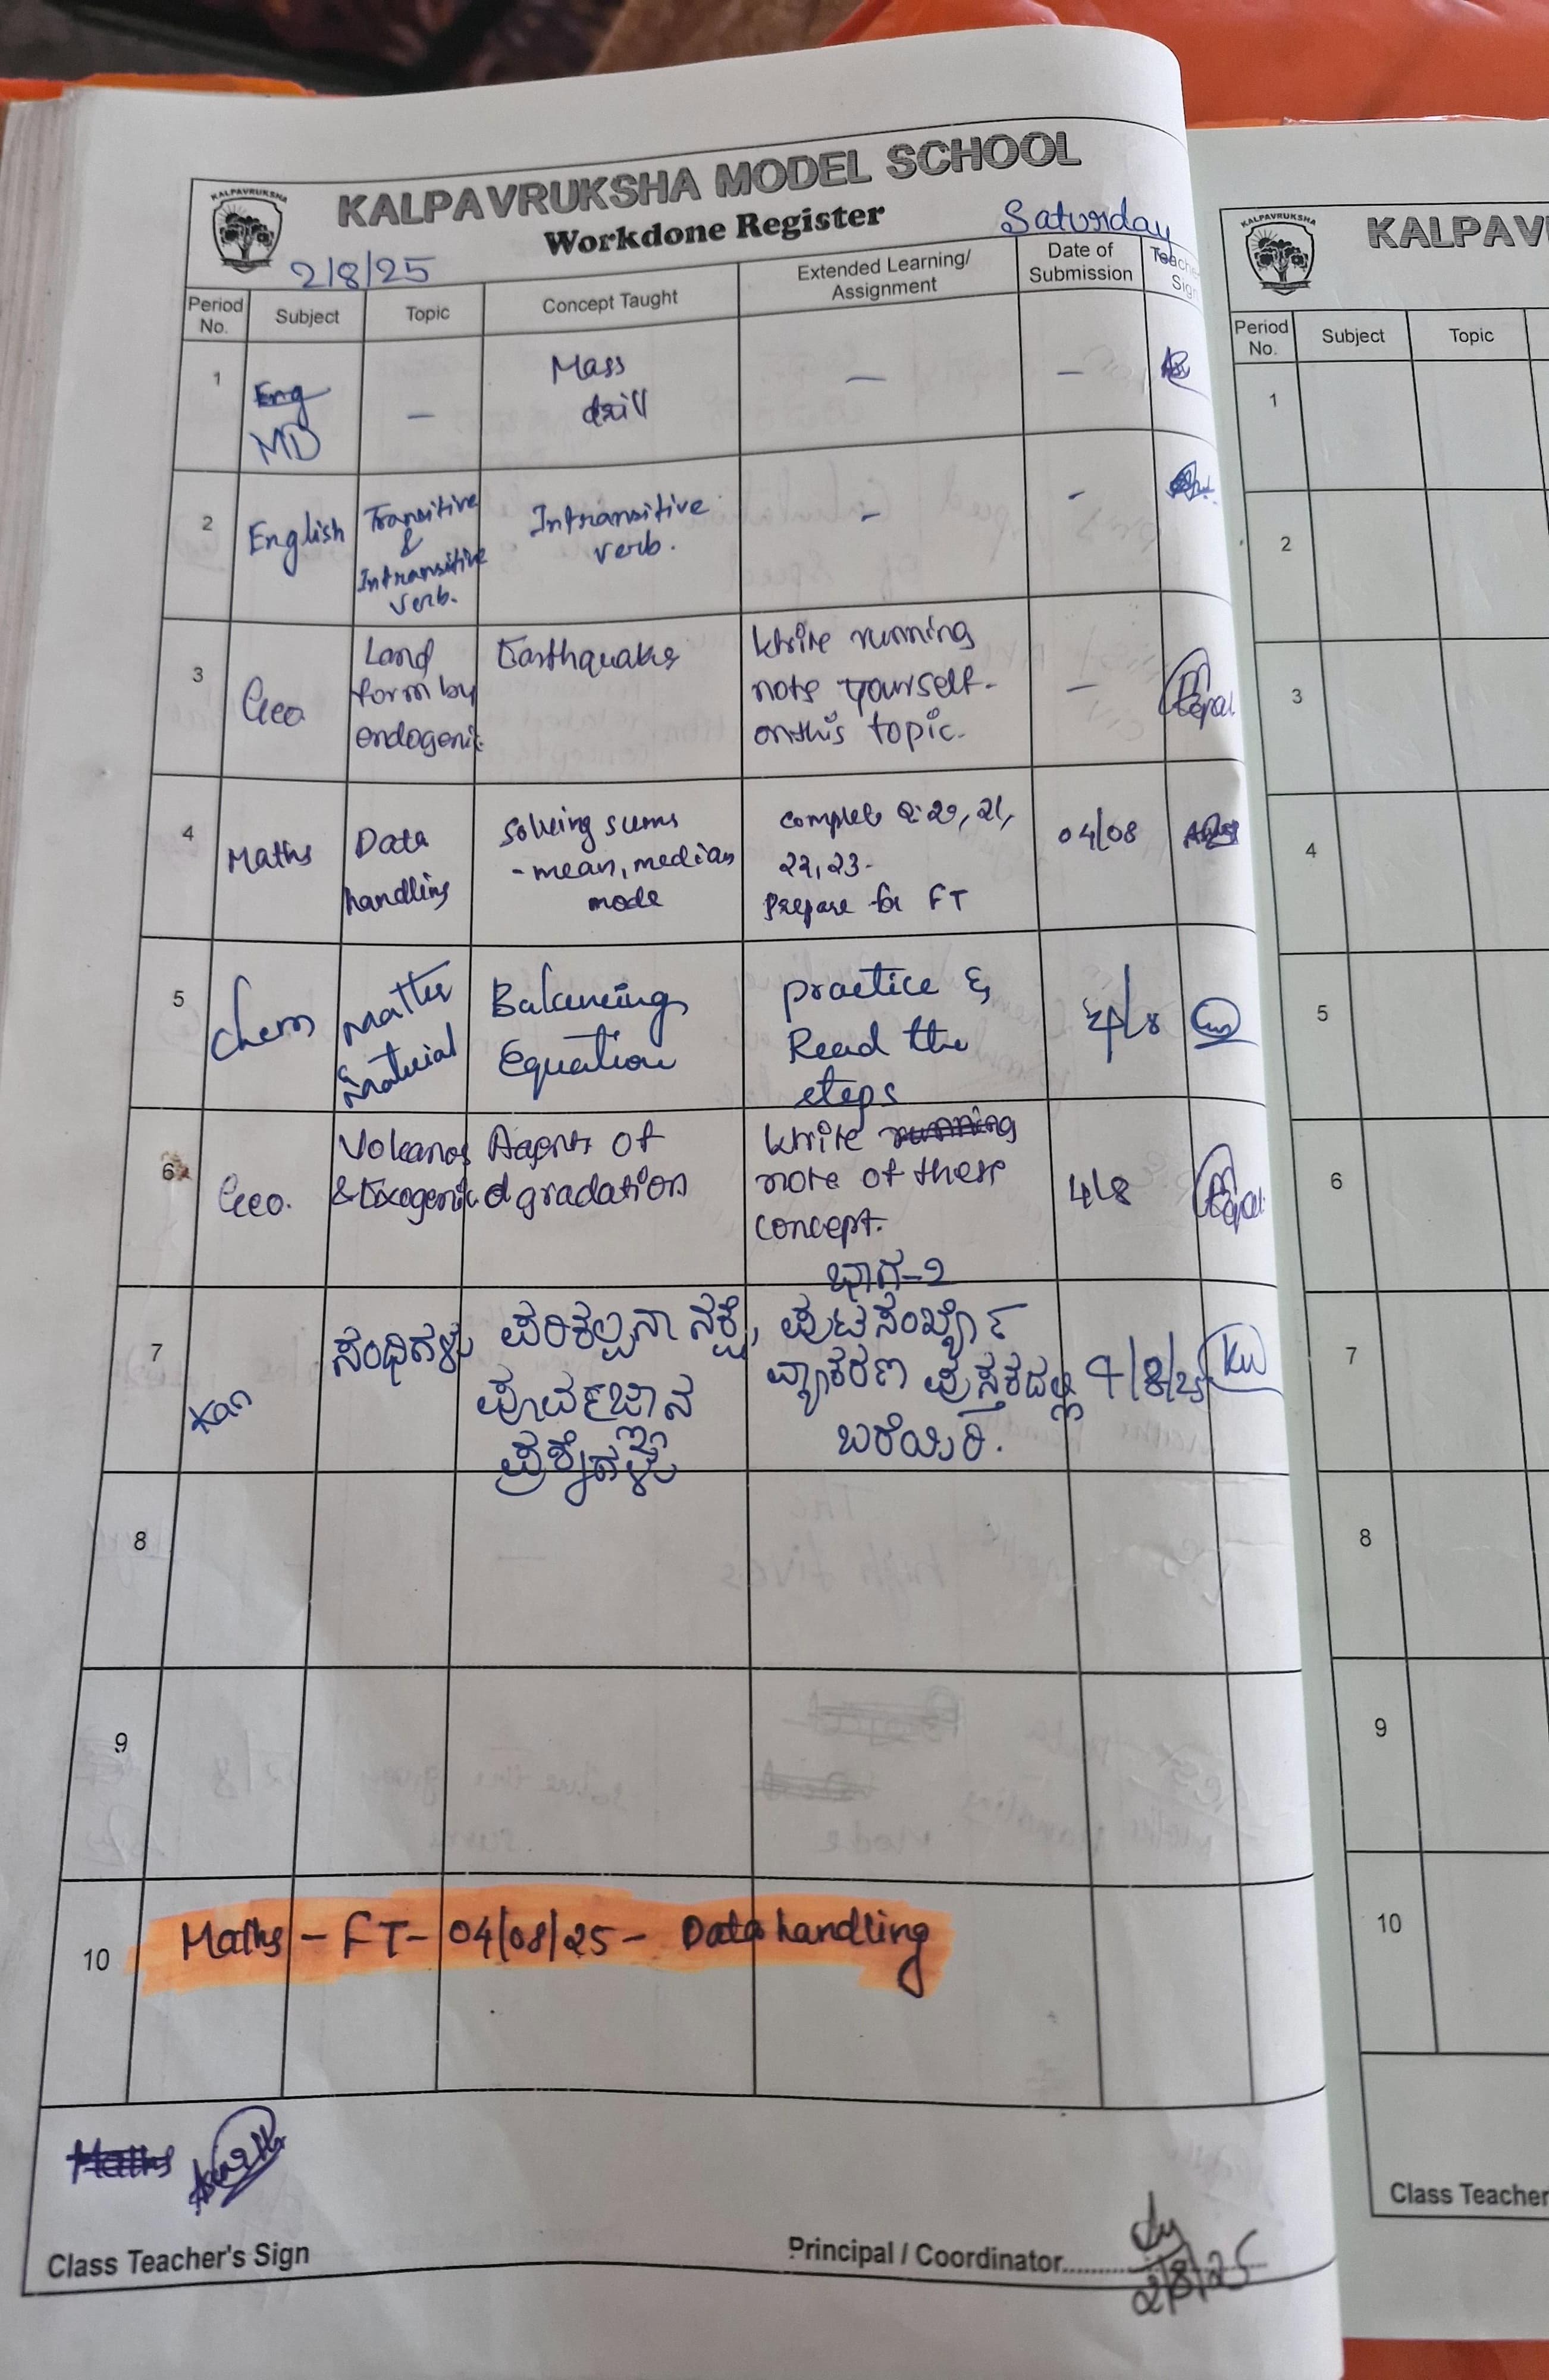 KALPAVRUKSHA
KALPAVRUKSHA MODEL SCHOOL
Workdone Register
Saturday
2/8/25
Period No.
Subject
Topic
Concept Taught
Extended Learning/ Assignment
Date of Submission
1
Eng
MD
–
Mass
drill
–
–
2
English
Transitive
&
Intransitive
verb.
Intransitive
verb.
–
-
3
Geo
Land
form by
endogenic
Earthquakes
Write running
note yourself-
on this topic.
–
4
Maths
Data
handling
solving sums
- mean, median
mode
complete Q: 20, 21,
22, 23-
Prepare for FT
04/08
5
Chem
matter
&
material
Balancing
Equation
practice &
Read the
steps
6
Geo.
Volcanos
& Exogenic
Aagents of
dgradation
Write running
note of these
concept.
4/8
7
Kan
ಸಂಧಿಗಳು
ಪರಿಕಲ್ಪನಾ ನಕ್ಷೆ,
ಪೂರ್ವಜ್ಞಾನ
ಪ್ರಶ್ನೆಗಳು
ಭಾಗ-೨
ವ್ಯಾಕರಣ ಪುಸ್ತಕದಲ್ಲಿ
ಬರೆಯಿರಿ.
4/8/25
8
9
10
Maths – FT – 04/08/25 – Data handling
Maths
Class Teacher's Sign
Principal / Coordinator
2/8/25
KALPAVRUKSHA
KALPAV
Period No.
Subject
Topic
1
2
3
4
5
6
7
8
9
10
Class Teacher